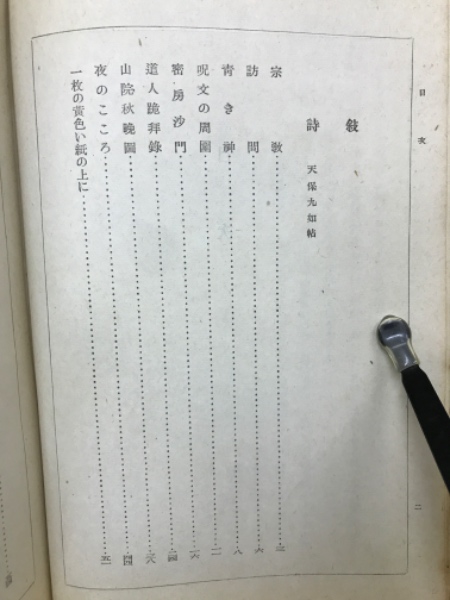 目次
敍
詩 天保九如帖
宗敎 三
訪問 六
青き神 八
呪文の周圍 一一
密房沙門 一六
道人跪拜錄 二四
山院秋晩圖 三八
夜のこころ 四四
一枚の黄色い紙の上に 五一
二